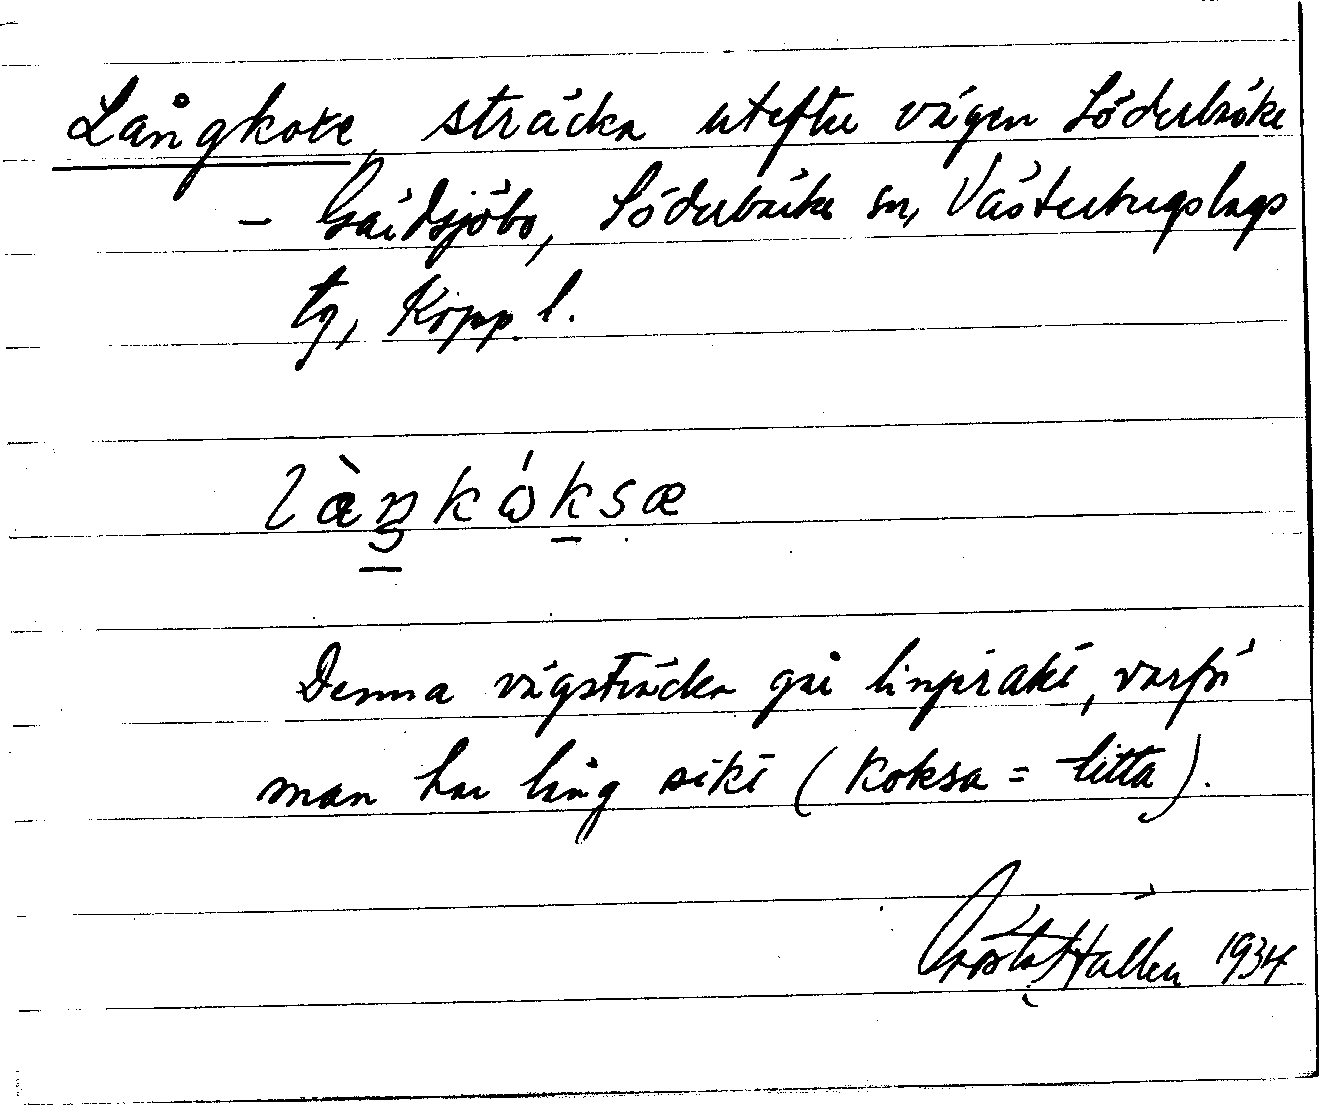 Långkoxe, sträcka utefter vägen Söderbärke
– Gärdsjöbo, Söderbärke sn, Västerbergslags
tg, Kopp. l.
làŋkóksæ
Denna vägsträcka går linjerakt, varför
man har lång sikt (koksa = titta).
Gösta Hallen 1934